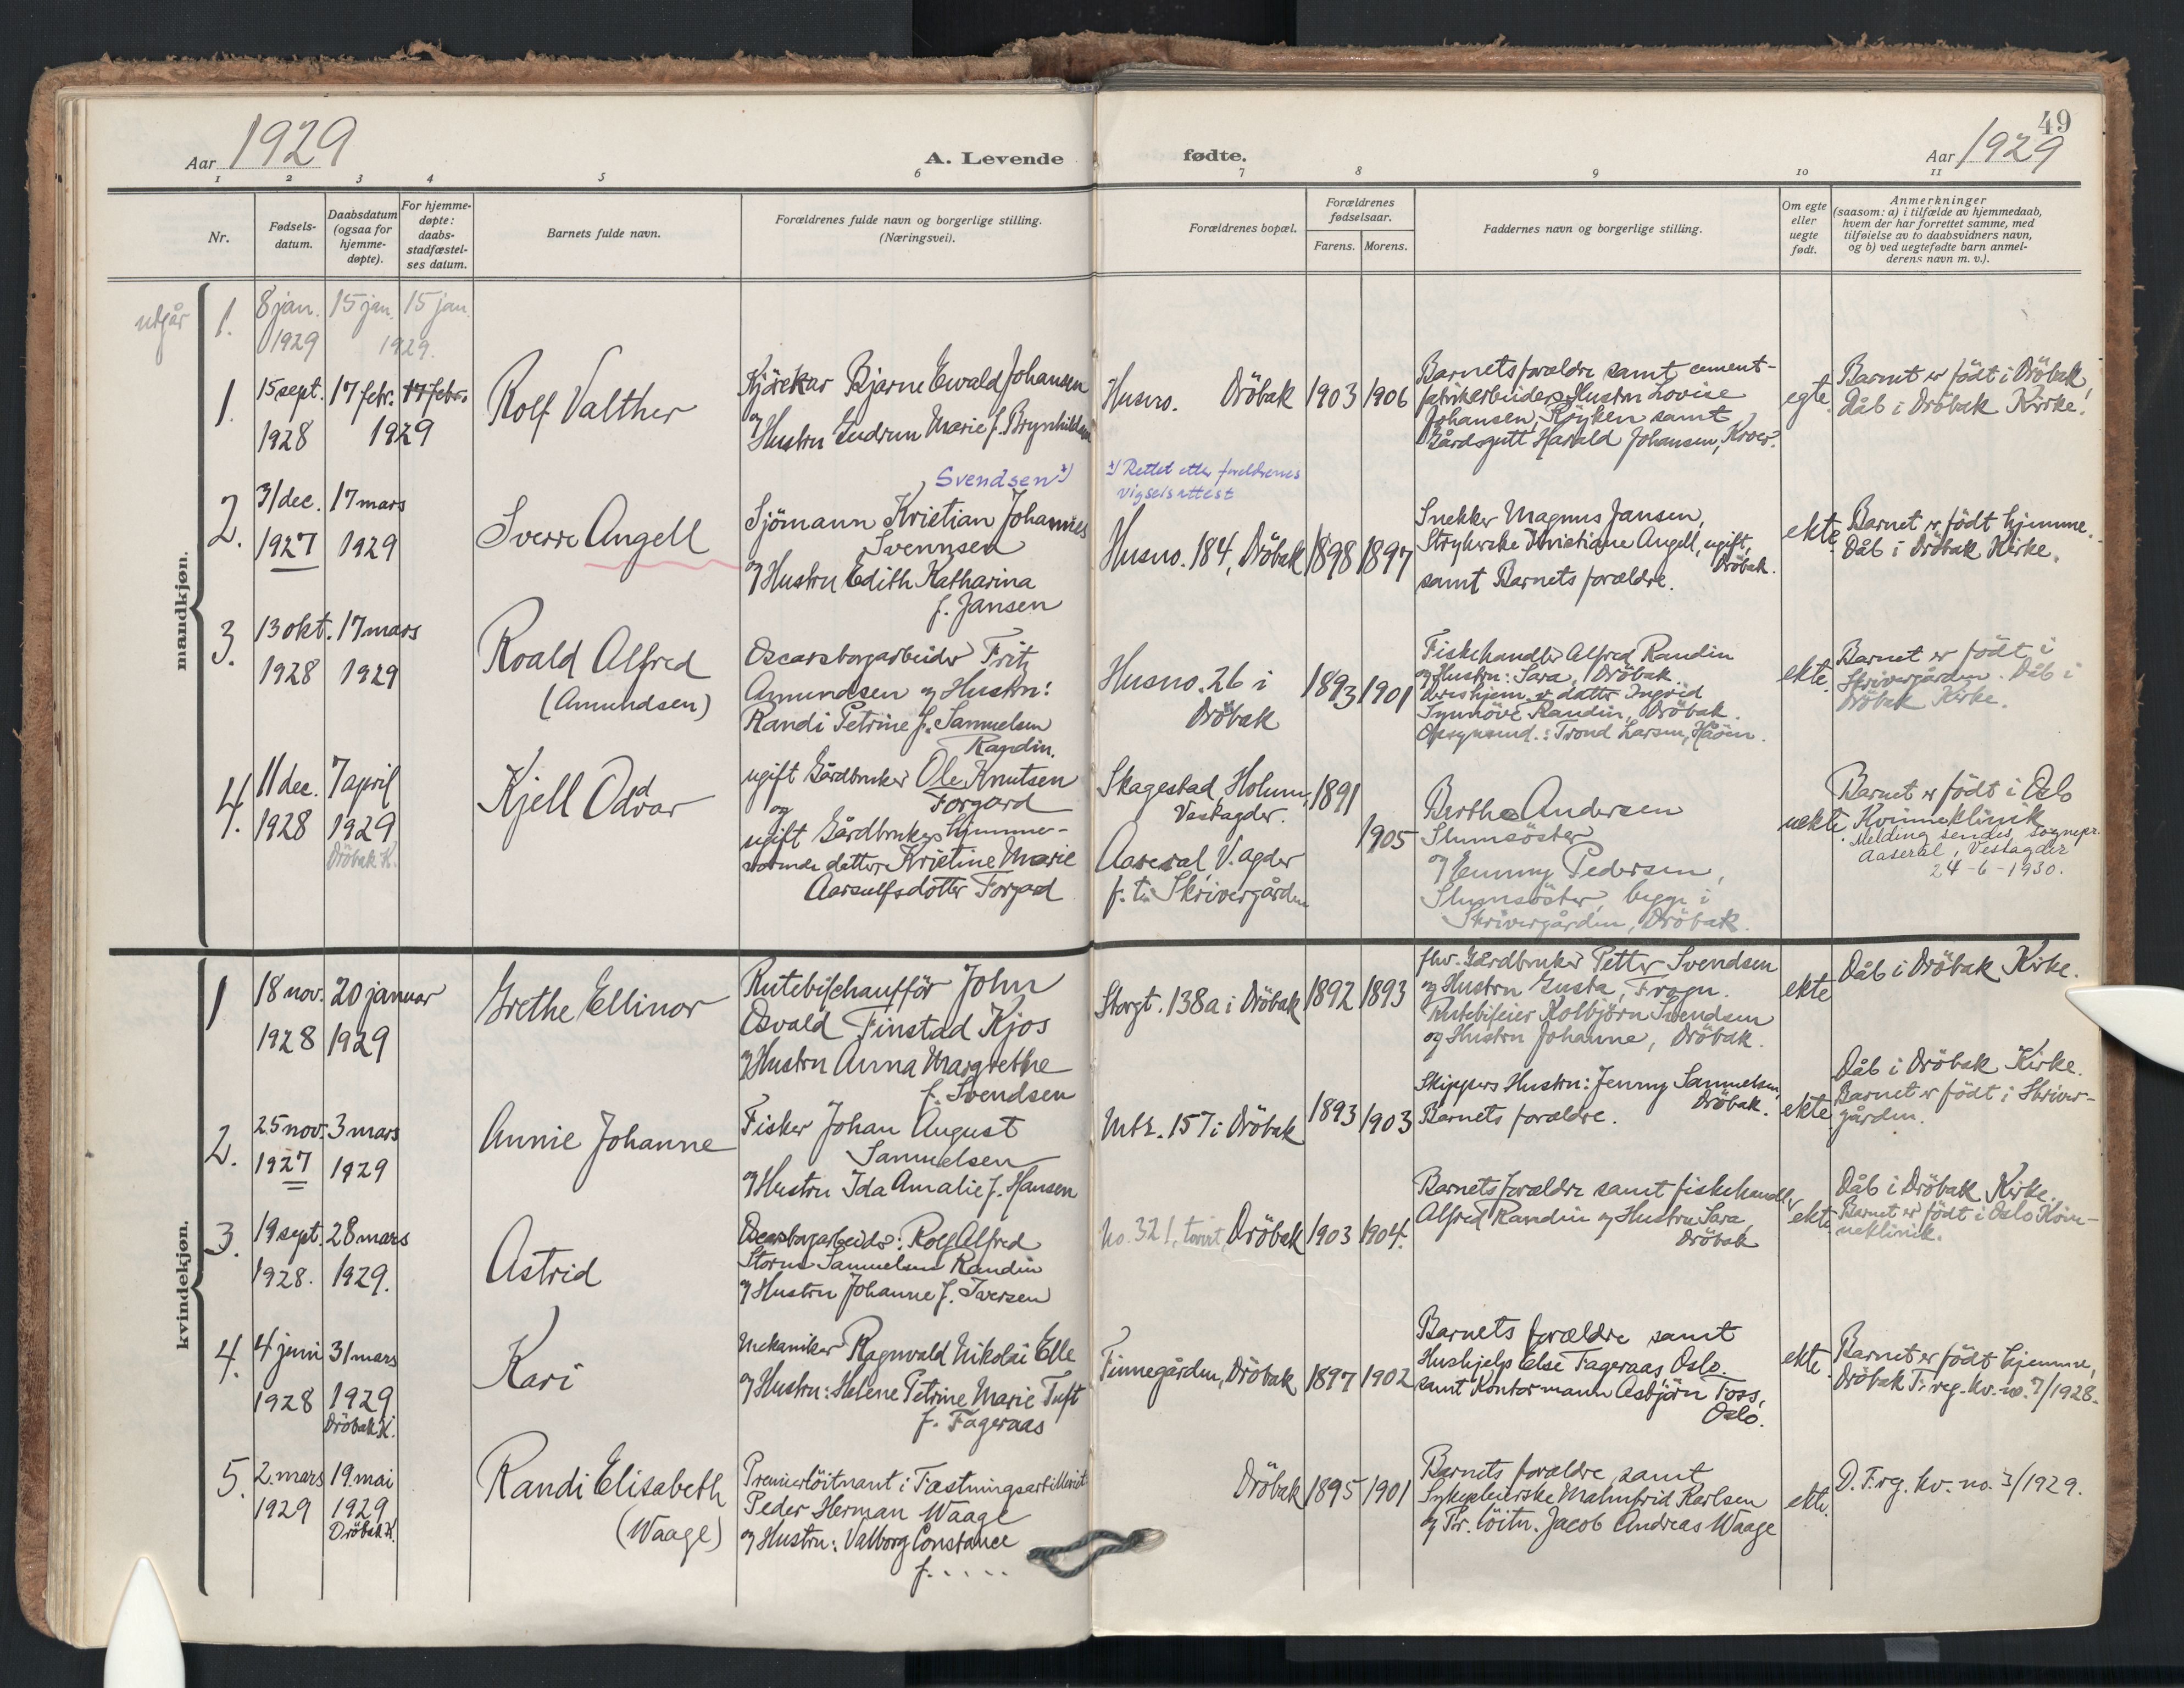 49
Aar 1929
A. Levende
fødte.
Aar 1929
1 2 3 4 5 6 7 8 9 10 11
Nr.
Fødsels-
datum.
Daabsdatum
(ogsaa for
hjemme-
døpte).
For hjemme-
døpte:
daabs-
stadfæstel-
ses datum.
Barnets fulde navn.
Forældrenes fulde navn og borgerlige stilling.
(Næringsvei).
Forældrenes bopæl.
Forældrenes
fødselsaar.
Farens. Morens.
Faddernes navn og borgerlige stilling.
Om egte
eller
uegte
født.
Anmerkninger
(saasom: a) i tilfælde av hjemmedaab,
hvem der har forrettet samme, med
tilføielse av to daabsvidners navn,
og b) ved uegtefødte barn anmel-
derens navn m. v.).
mandkjøn.
utgår
1.
8 jan.
1929
15 jan.
15 jan.
1929.
1.
15 sept.
1928
17 febr.
17 febr.
1929
Rolf Valther
Kjörekar Bjarne Ewald Johansen
og
Hustru Gudrun Marie f. Brynhildsen
Husno. Dröbak
1903
1906
Barnets forældre samt cement-
fabrikarbeiders Hustru Lovise
Johansen, Röyken samt
Gårdsgutt Harald Johansen, Kroer.
egte.
Barnet er födt i Dröbak,
Dåb i Dröbak Kirke.
2.
31 dec.
1927
17 mars
1929
Sverre Angell
Svendsen x)
Sjömann Kristian Johannes
Svennsen
og Hustru Edith Katharina
f. Jansen
x) Rettet etter foreldrenes
vigselsattest
Husno. 184, Dröbak
1898
1897
Snekker Magnus Jansen,
Strykerske Kristiane Angell, ugift,
Dröbak.
samt Barnets forældre.
ekte.
Barnet er födt hjemme.
Dåb i Dröbak Kirke.
3.
13 okt.
1928
17 mars
1929
Roald Alfred
(Amundsen)
Oscarsborgarbeider Fritz
Amundsen og Hustru:
Randi Petrine f. Samuelsen
Randin.
Husno. 26 i
Dröbak
1893
1901
Fiskehandler Alfred Randin
og Hustru: Sara, Dröbak.
deres hjem. v. datter Ingrid
Synnöve Randin, Dröbak.
Opsynsmd.: Trond Larsen, Håöen.
ekte.
Barnet er födt i
Skrivergården. Dåb i
Dröbak Kirke.
4.
11 dec.
1928
7 april
1929
Dröbak K.
Kjell Oddvar
ugift Gårdbruker Ole Knutsen
og Forgard
ugift Gårdbrukers hjemme-
værende datter Kristine Marie
Aarsulfsdotter Forgard
Skagestad, Holum,
Vestagder.
Aaseral, V. agder
f. t. Skrivergården
1891
1905
Berthe Andersen
Slumsöster
og Hemmy Pedersen,
Slumsöster, begge i
Skrivergården, Dröbak.
uekte.
Barnet er födt i Oslo
Kvinneklinik
Melding sendes sognepr.
Aaseral, Vestagder
24-6-1930.
kvindekjøn.
1
18 nov.
1928
20 januar
1929
Grethe Ellinor
Rutebilchaufför John
Osvald Finstad Kjos
og Hustru Anna Margrethe
f. Svendsen
Storgt. 138a i Dröbak
1892
1893
fhv. Gårdbruker Petter Svendsen
og Hustru Gusta, Frogn.
Rutebileier Kolbjörn Svendsen
og Hustru Johanne, Dröbak.
ekte
Dåb i Dröbak Kirke.
2.
25 nov.
1927
3 mars
1929
Annie Johanne
Fisker Johan August
Samuelsen
og Hustru Ida Amalie f. Hansen
Mtr. 157 i Dröbak
1893
1903
Skippers Hustru: Jenny Samuelsen,
Dröbak.
Barnets forældre.
ekte.
Dåb i Dröbak Kirke.
Barnet er födt i Skriver-
gården.
3.
19 sept.
1928.
28 mars
1929.
Astrid
Oscarsborgarbeider: Rolf Alfred
Storm Samuelsen Randin
og Hustru Johanne f. Iversen
No. 321, torvet, Dröbak
1903
1904.
Barnets forældre samt fiskehandler
Alfred Randin og Hustru Sara,
Dröbak
ekte.
Dåb i Dröbak Kirke.
Barnet er födt i Oslo Kvin-
neklinik.
4.
4 juni
1928
31 mars
1929
Dröbak K.
Kari
Mekaniker Ragnvald Nikolai Elle
og Hustru: Helene Petrine Marie Tuft
f. Fageraas
Finnegården, Dröbak
1897
1902
Barnets forældre samt
Hushjelp Else Fageraas, Oslo.
samt Kontormann Asbjörn Foss,
Oslo.
ekte.
Barnet er födt hjemme,
Dröbak F. reg. kv. no. 7/1928.
5.
2. mars
1929
19. mai
1929
Dröbak K.
Randi Elisabeth
(Waage)
Premierlöitnant i Fæstningsartilleriet
Peder Herman Waage
og Hustru: Valborg Constance
f. . . . . .
Dröbak
1895
1901
Barnets forældre samt
Sykepleierske Malmfrid Karlsen
og Pr. löitn. Jacob Andreas Waage
ekte.
D. F. rg. kv. no. 3/1929.